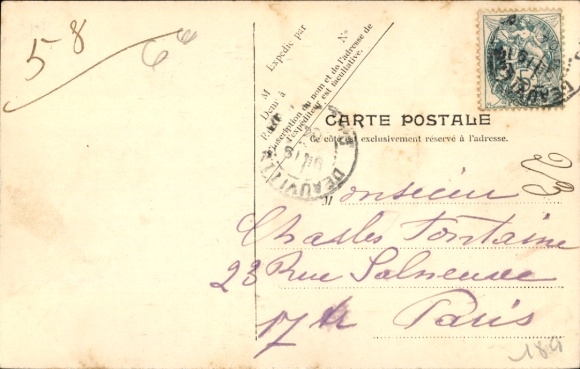 58
Nº
Expédié par
M
Demt à
L'inscription du nom et de l'adresse de
l'expéditeur est facultative.
CARTE POSTALE
Ce côté est exclusivement réservé à l'adresse.
DEAUVILLE
DEAUVILLE
Monsieur
Charles Fontaine
23 Rue Salneuve
17e
Paris
189